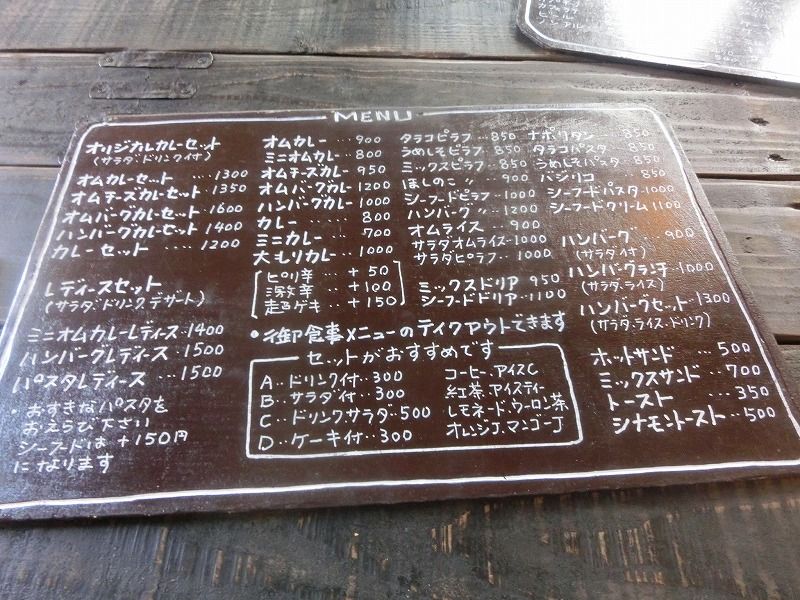 MENU
オリジナルカレーセット
(サラダ・ドリンク付)
オムカレーセット ‥‥ 1300
オムチーズカレーセット ‥ 1350
オムバーグカレーセット ‥ 1600
ハンバーグカレーセット ‥ 1400
カレーセット ‥‥ 1200
レディースセット
(サラダ・ドリンク デザート)
ミニオムカレーレディース ‥ 1400
ハンバーグレディース ‥ 1500
パスタレディース ‥‥ 1500
・おすきなパスタを
おえらび下さい
シーフードは +150円
になります
オムカレー ‥‥ 900
ミニオムカレー ‥ 800
オムチーズカレー 950
オムバーグカレー 1200
ハンバーグカレー 1000
カレー ‥‥ 800
ミニカレー 700
大もりカレー ‥ 1000
ピリ辛 ‥ +50
激辛 ‥ +100
超ゲキ ‥ +150
タラコピラフ ‥ 850
うめしそピラフ ‥ 850
ミックスピラフ ‥ 850
ほしのこ 〃 900
シーフードピラフ 1000
ハンバーグ 〃 ‥ 1200
オムライス ‥ 900
サラダオムライス ‥ 1000
サラダピラフ ‥‥ 1000
ミックスドリア 950
シーフードドリア ‥ 1100
ナポリタン ‥ 850
タラコパスタ 850
うめしそパスタ 850
バジリコ 850
シーフードパスタ 1000
シーフードクリーム 1100
ハンバーグ 900
(サラダ付)
ハンバーグランチ 1000
(サラダ・ライス)
ハンバーグセット ‥ 1300
(サラダ・ライス・ドリンク)
ホットサンド ‥ 500
ミックスサンド ‥ 700
トースト ‥‥ 350
シナモントースト ‥ 500
・御食事メニューのテイクアウトできます
セットがおすすめです
A‥ドリンク付 ‥ 300
B‥サラダ付 ‥ 300
C‥ドリンクサラダ ‥ 500
D‥ケーキ付 ‥ 300
コーヒー.アイスC
紅茶.アイスティー
レモネード.ウーロン茶
オレンジJ.マンゴーJ